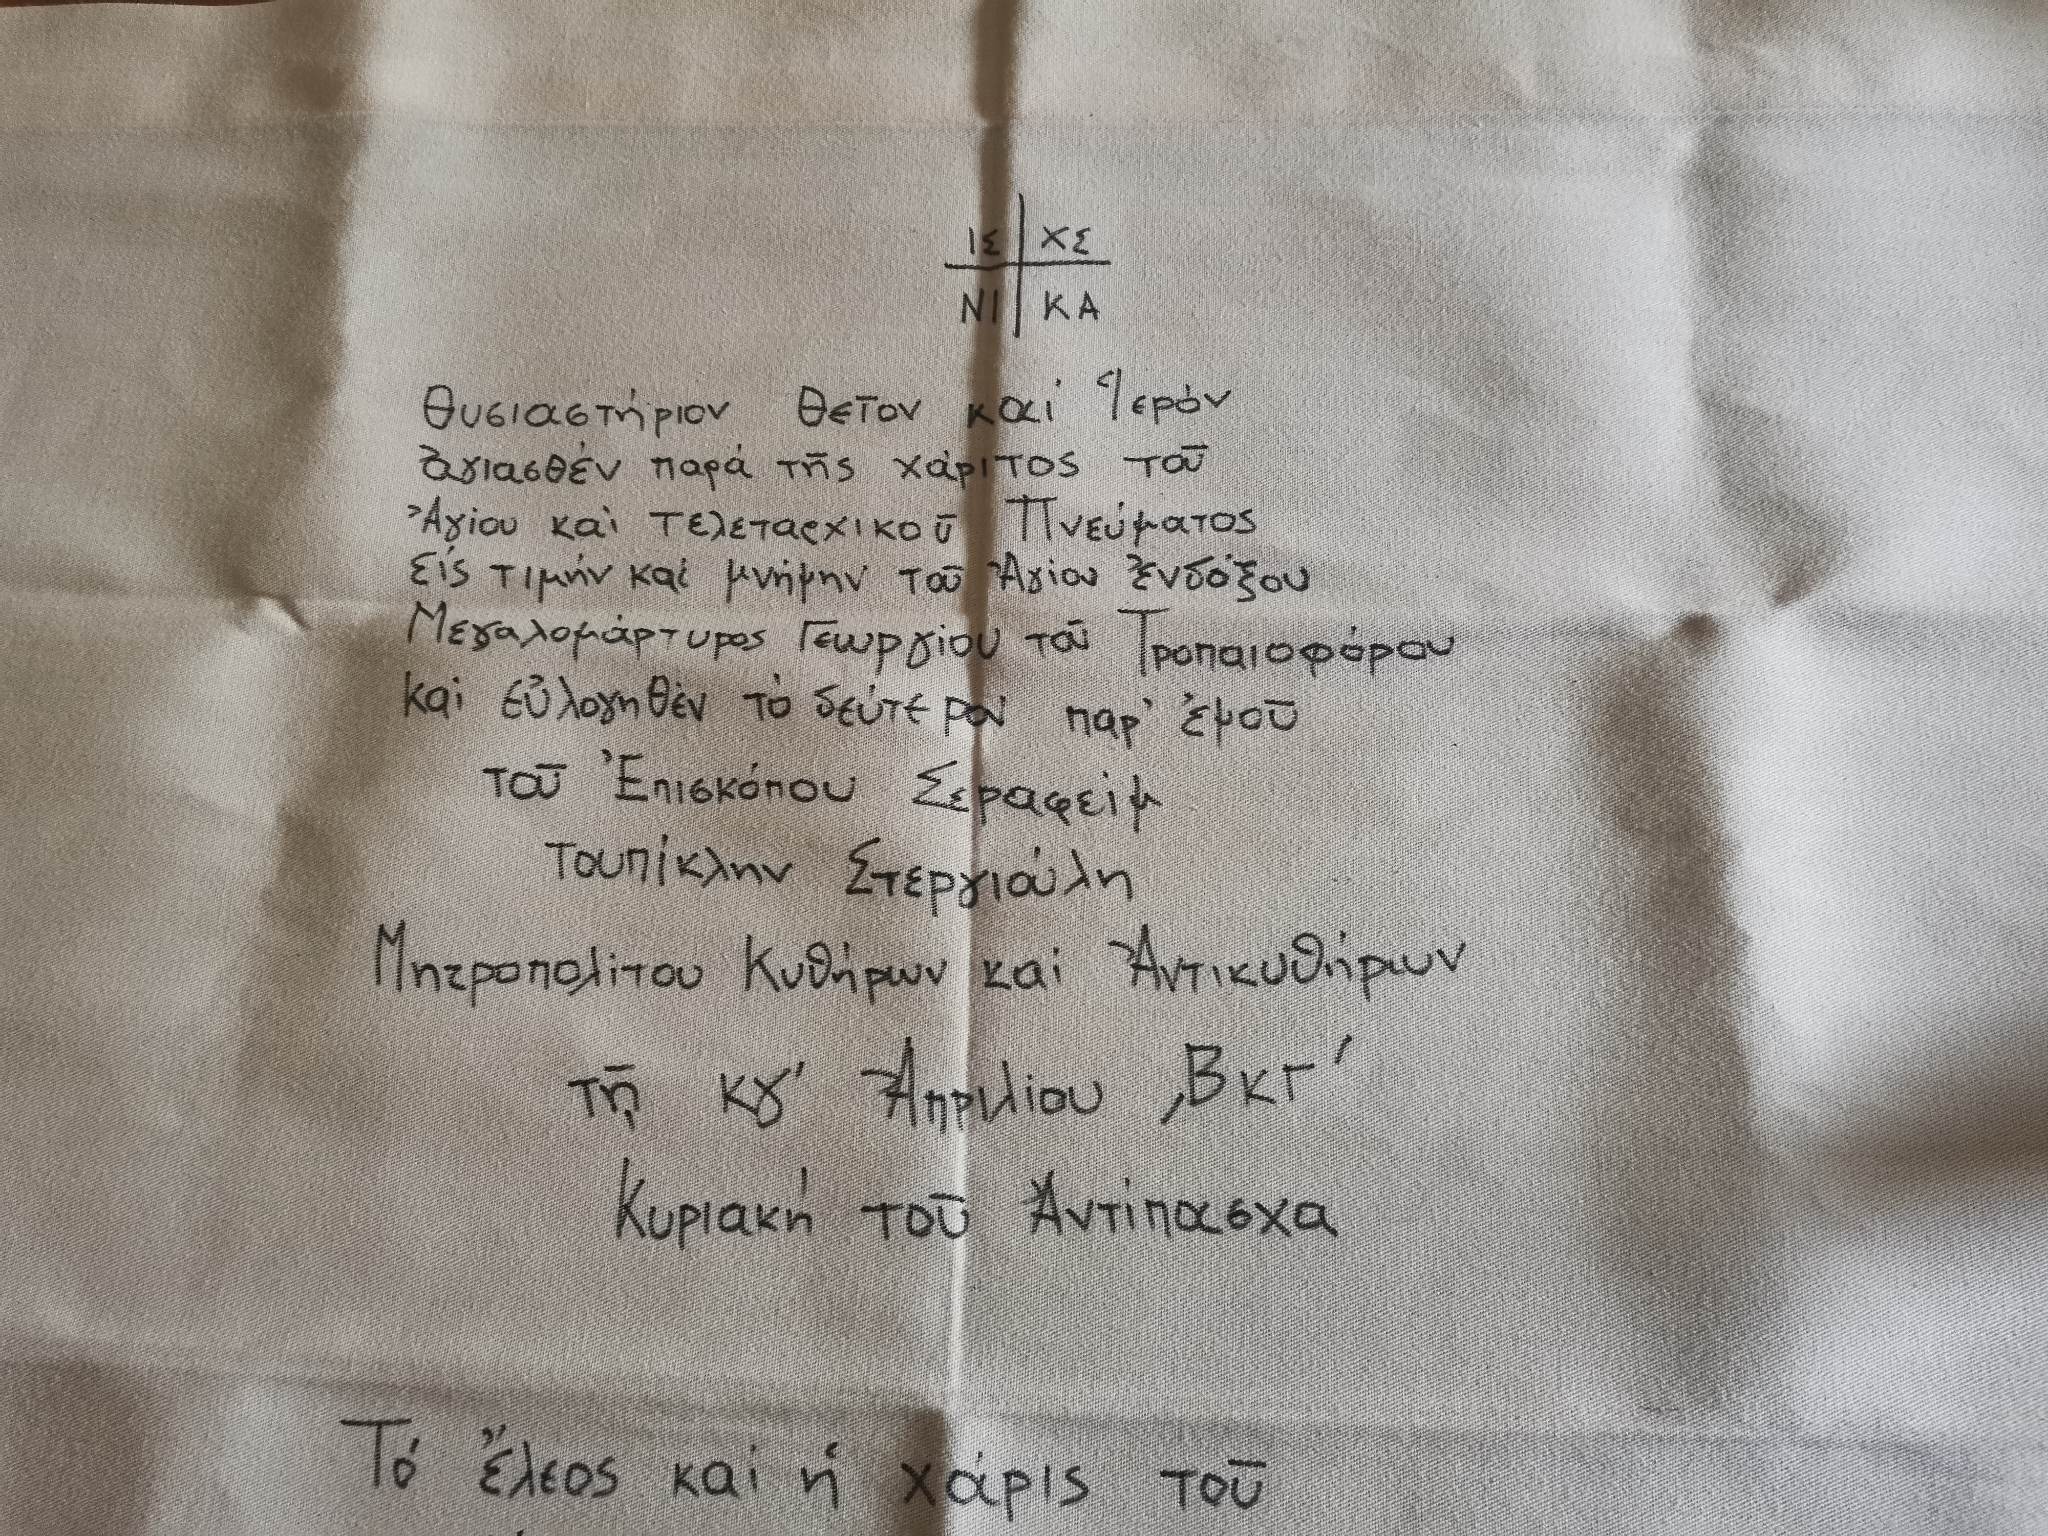 ΙΣ ΧΣ
ΝΙ ΚΑ
Θυσιαστήριον θεῖον καί Ἱερόν
ἁγιασθέν παρά τῆς χάριτος τοῦ
Ἁγίου καί τελεταρχικοῦ Πνεύματος
εἰς τιμήν καί μνήμην τοῦ Ἁγίου ἐνδόξου
Μεγαλομάρτυρος Γεωργίου τοῦ Τροπαιοφόρου
καί εὐλογηθέν τό δεύτερον παρ' ἐμοῦ
τοῦ Ἐπισκόπου Σεραφείμ
τουπίκλην Στεργιούλη
Μητροπολίτου Κυθήρων καί Ἀντικυθήρων
τῇ κγ' Ἀπριλίου ,ΒΚΓ'
Κυριακή τοῦ Ἀντίπασχα
Τό ἔλεος καί ἡ χάρις τοῦ